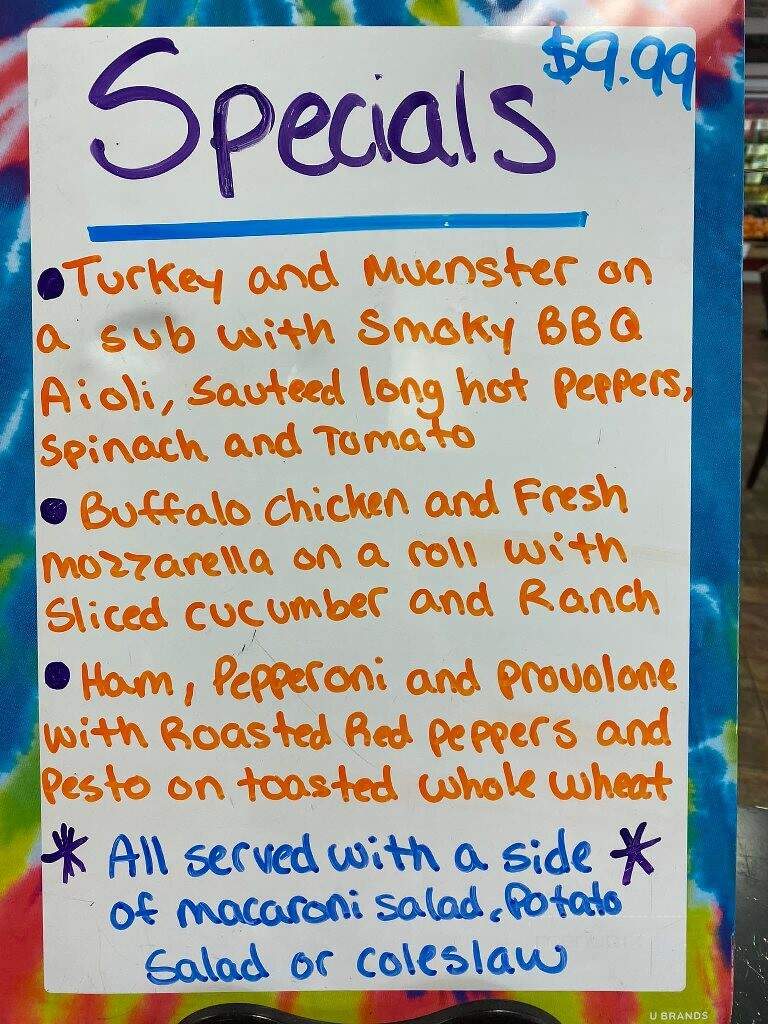 Specials
$9.99
Turkey and Muenster on
a sub with Smoky BBQ
Aioli, Sauteed long hot Peppers,
Spinach and Tomato
Buffalo Chicken and Fresh
Mozzarella on a roll with
Sliced cucumber and Ranch
Ham, Pepperoni and provolone
with Roasted Red peppers and
Pesto on toasted whole wheat
* All served with a side *
of macaroni salad, Potato
Salad or coleslaw
U BRANDS